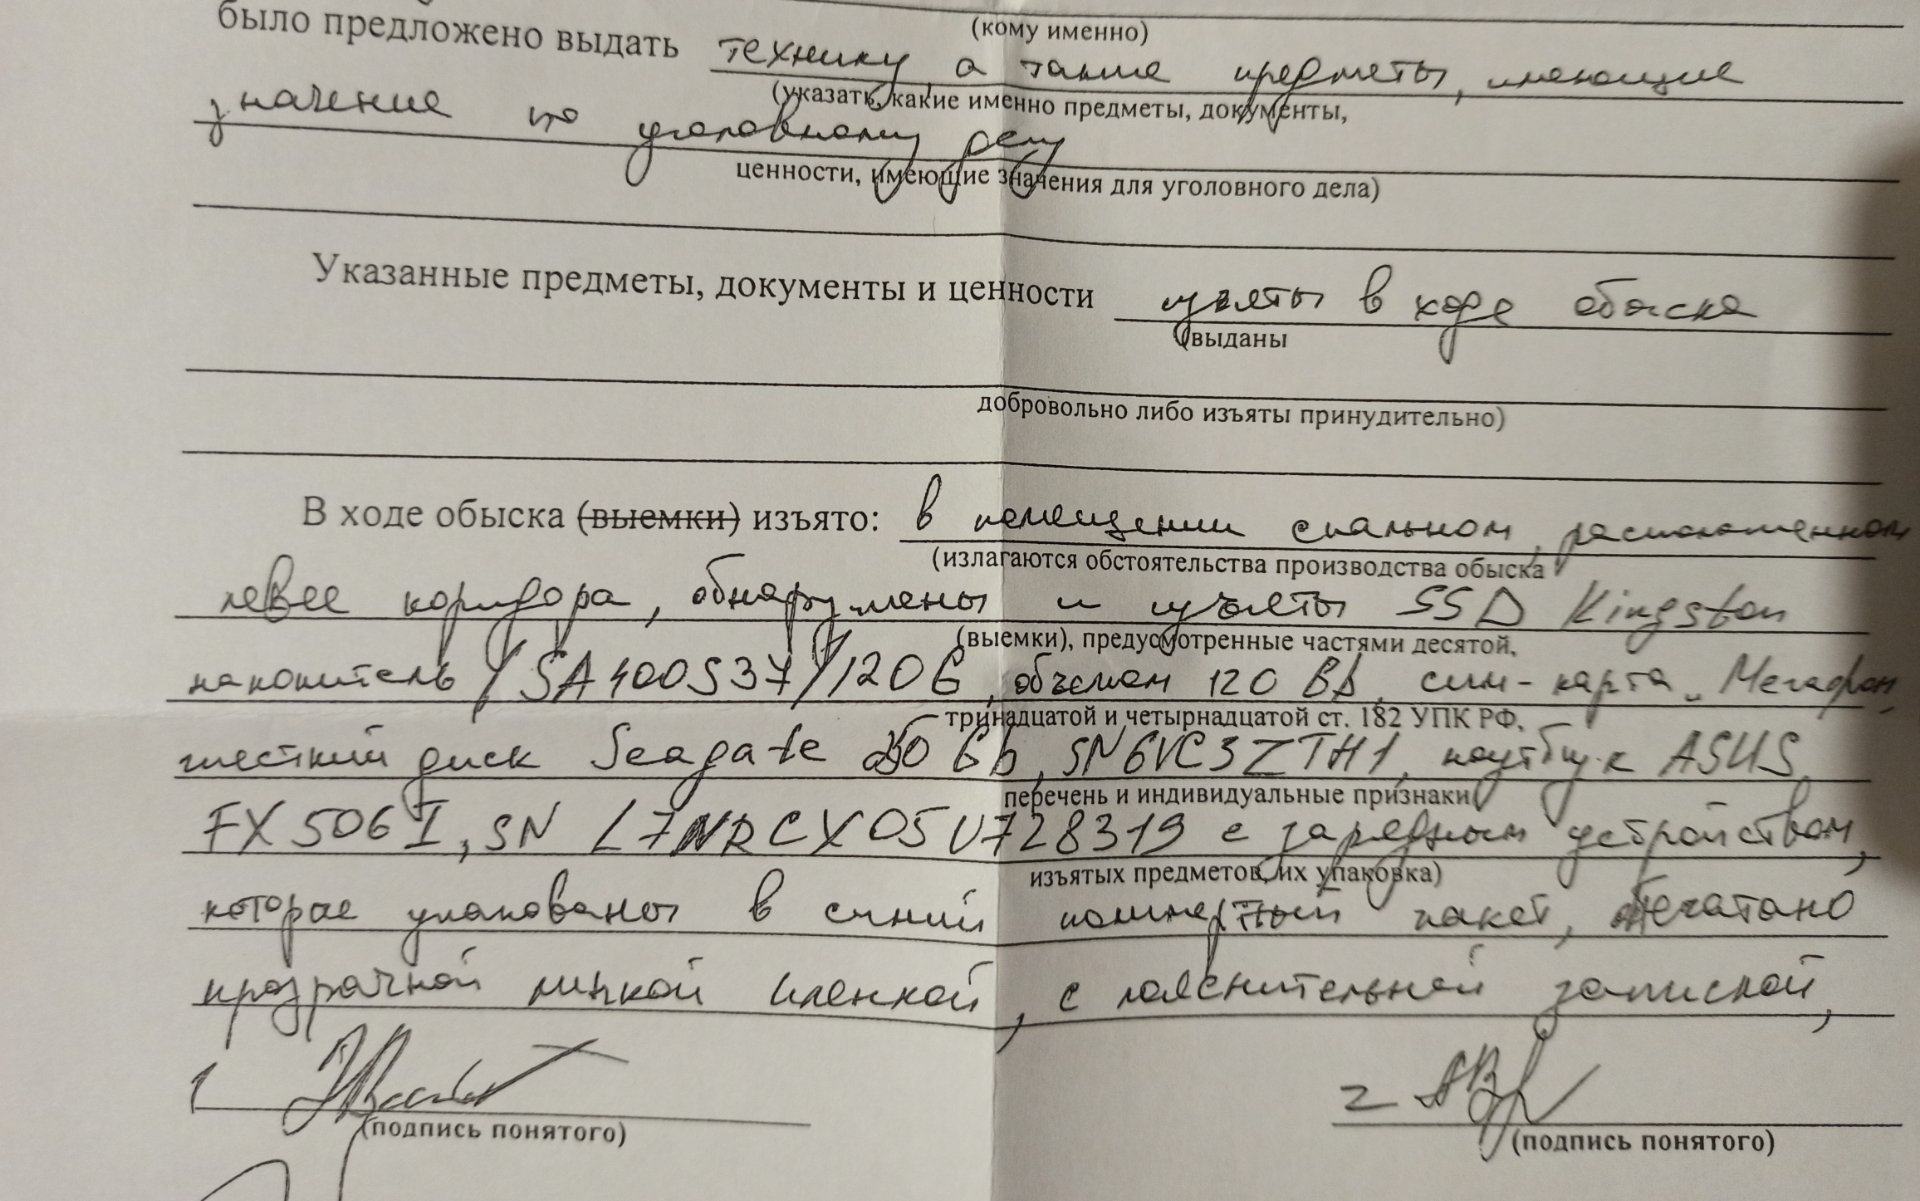 (кому именно)
было предложено выдать технику а также предметы, имеющие
(указать, какие именно предметы, документы,
значение по уголовному делу
ценности, имеющие значения для уголовного дела)
Указанные предметы, документы и ценности изъяты в ходе обыска
(выданы
добровольно либо изъяты принудительно)
В ходе обыска (выемки) изъято: в помещении спальном, расположенном
(излагаются обстоятельства производства обыска
левее коридора, обнаружены и изъяты SSD Kingston
(выемки), предусмотренные частями десятой,
накопитель SA400S37/120G, объемом 120 сим-карта Мегафон,
тринадцатой и четырнадцатой ст. 182 УПК РФ,
жесткий диск Seagate Gb, SN6VC3ZTH1, ноутбук ASUS
перечень и индивидуальные признаки
FX506I, SN L7NRCX05U728319 с зарядным устройством,
изъятых предметов, их упаковка)
которые упакованы в синий полимерный пакет, опечатано
прозрачной липкой пленкой, с пояснительной запиской,
1
(подпись понятого)
2
(подпись понятого)